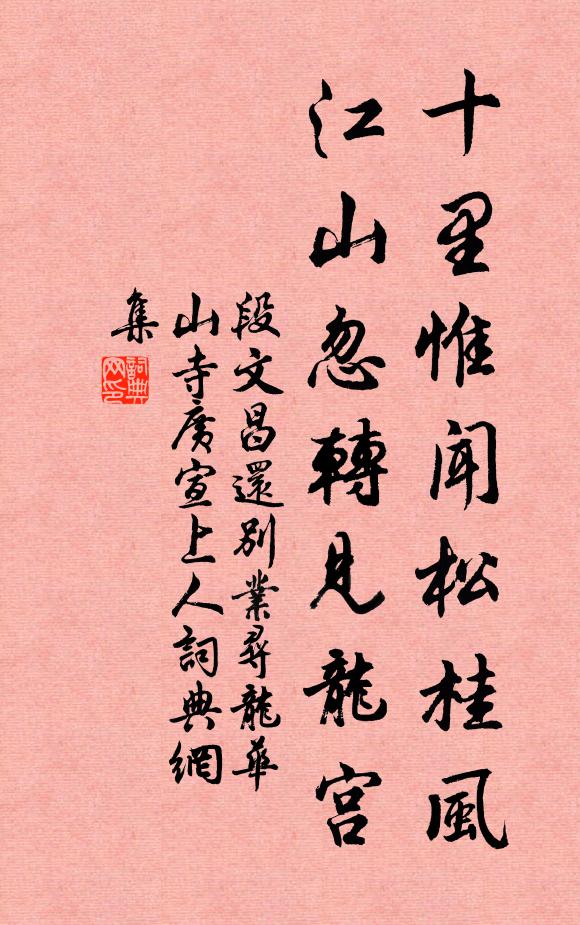 十里惟闻松桂風
江山忽轉見龍宮
段文昌還別業尋龍華
山寺廣宣上人詞典網
集
詞典
网印